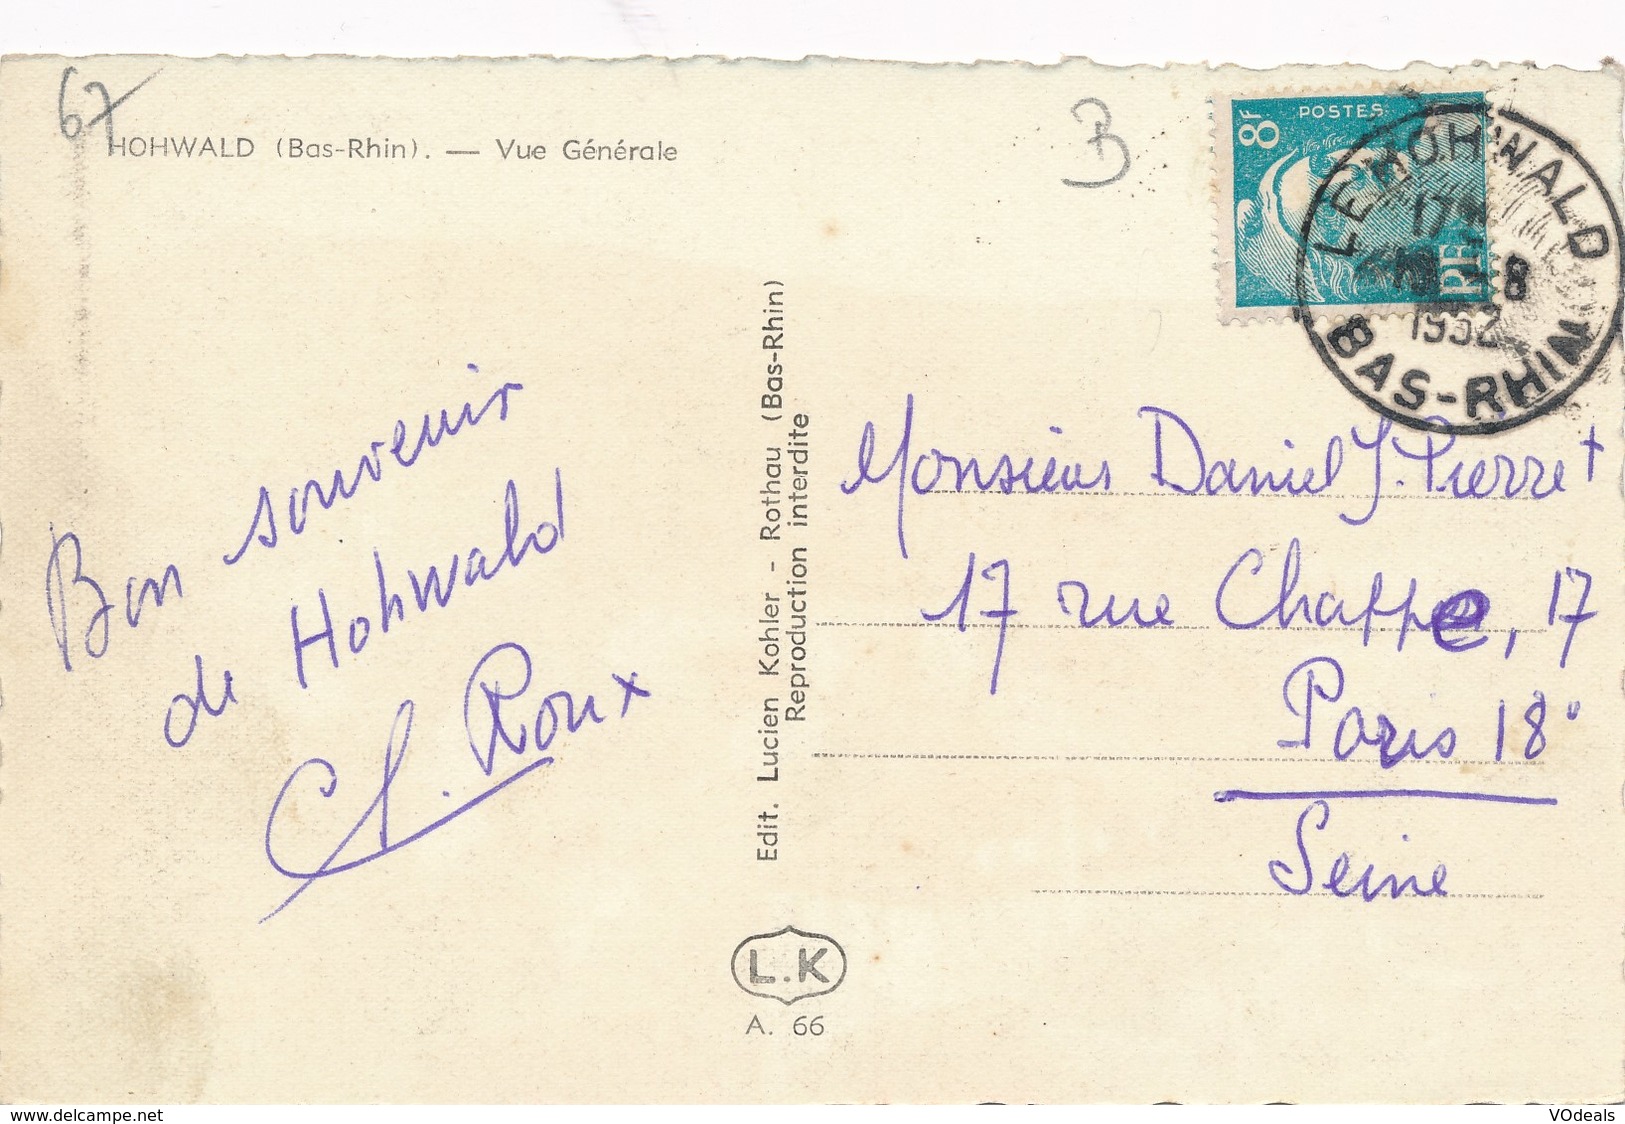 67
HOHWALD (Bas-Rhin). — Vue Générale
B
8F
POSTES
RF
LE HOHWALD
17
8
1952
BAS-RHIN
Bon souvenir
de Hohwald
Ch. Roux
Edit. Lucien Kohler - Rothau (Bas-Rhin)
Reproduction interdite
L.K
A. 66
Monsieur Daniel J. Pierret
17 rue Chappe, 17
Paris 18e
Seine
www.delcampe.net
VOdeals